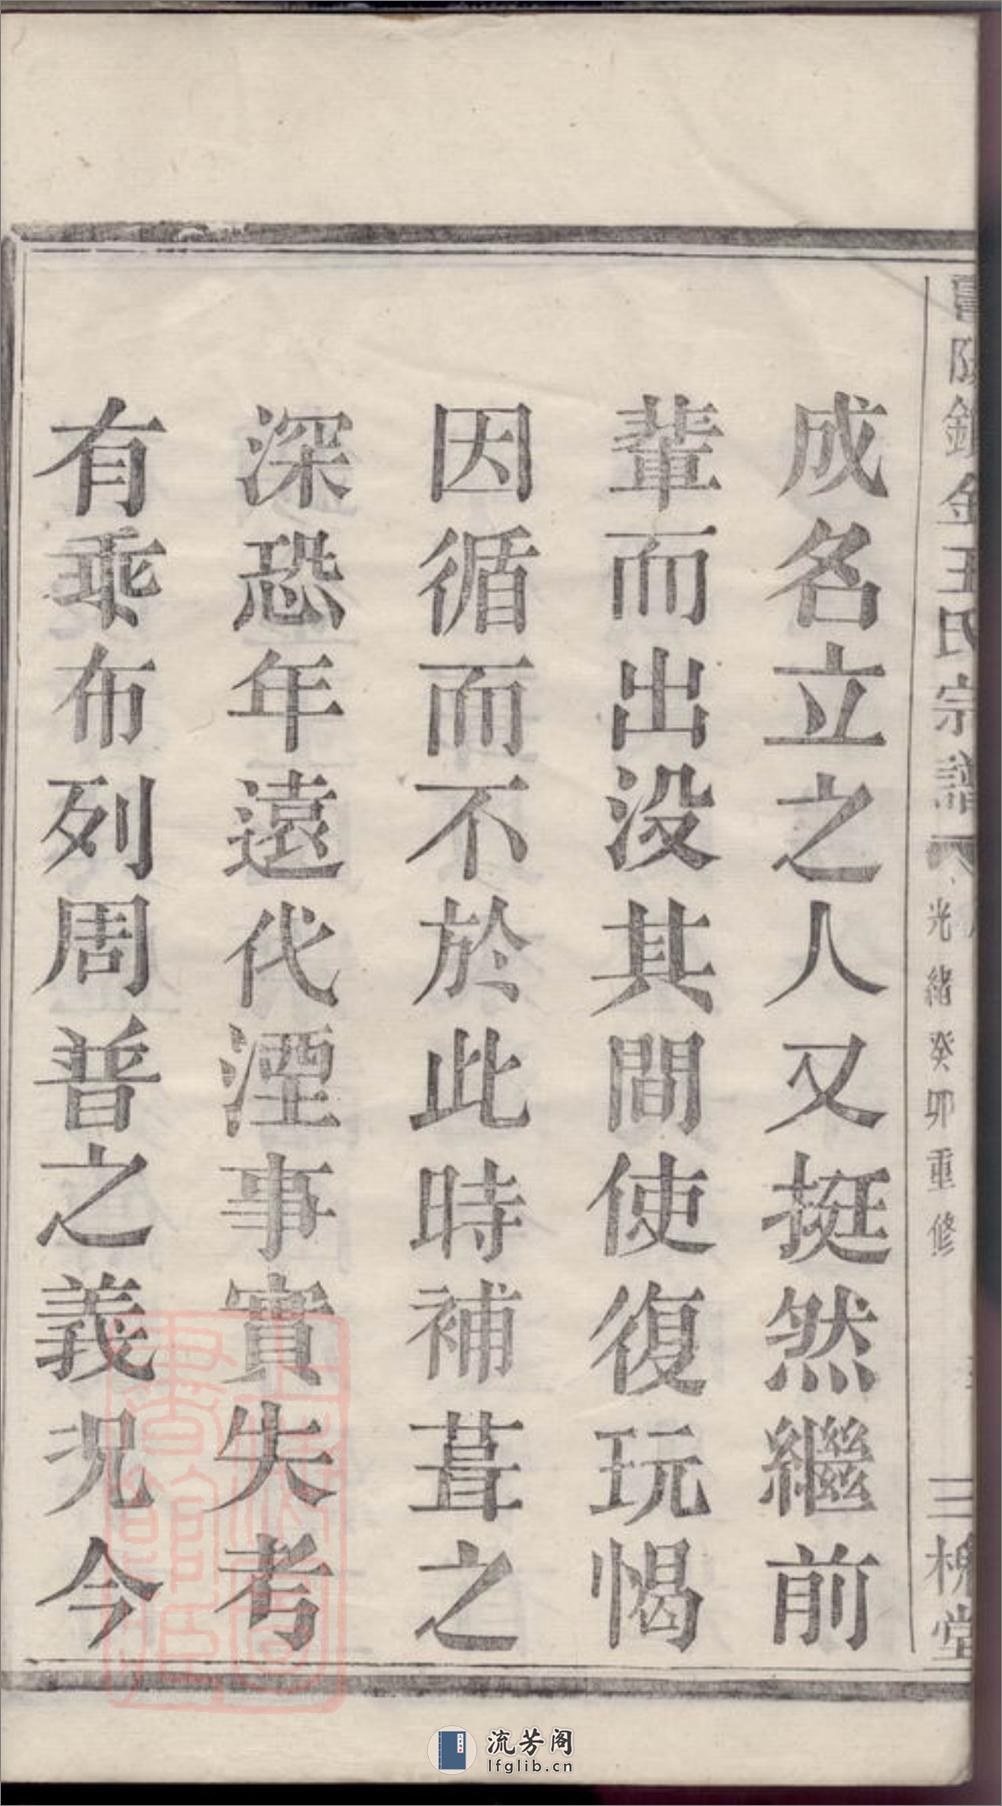 陽鎮金王氏宗譜
光緒癸卯重修
三槐堂
成名立之人又挺然繼前
輩而出没其間使復玩愒
因循而不於此時補葺之
深恐年遠代湮事實失考
有乖布列周普之義况今
流芳阁
lfglib.cn